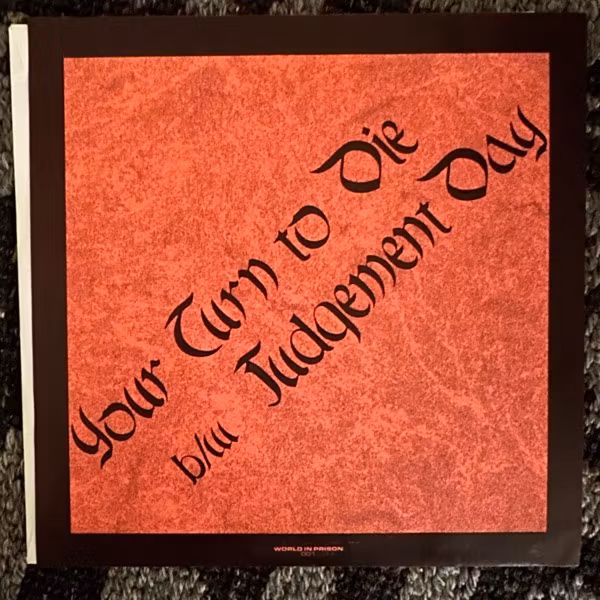 Your Turn to Die
b/w Judgement Day
WORLD IN PRISON
001